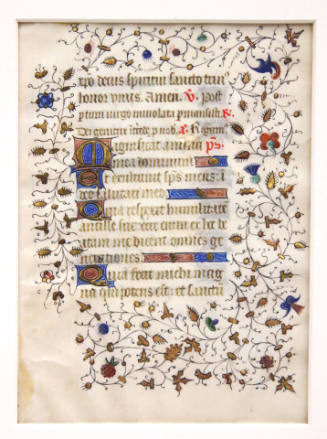 xpo decus spiritui sancto trin
honor vnus. Amen. V. Post
ptum uirgo inuiolata pmansisti. R.
Dei genitrix itcede p nob. A.
Magnificat anima ps.
mea dominum
Et exultauit sps meus: i
deo salutari meo
Quia respexit humilitate
ancille sue ecce enim ex hoc be
atam me dicent omnes ge
nerationes
Quia fecit michi mag
na qui potens est: et sanctu